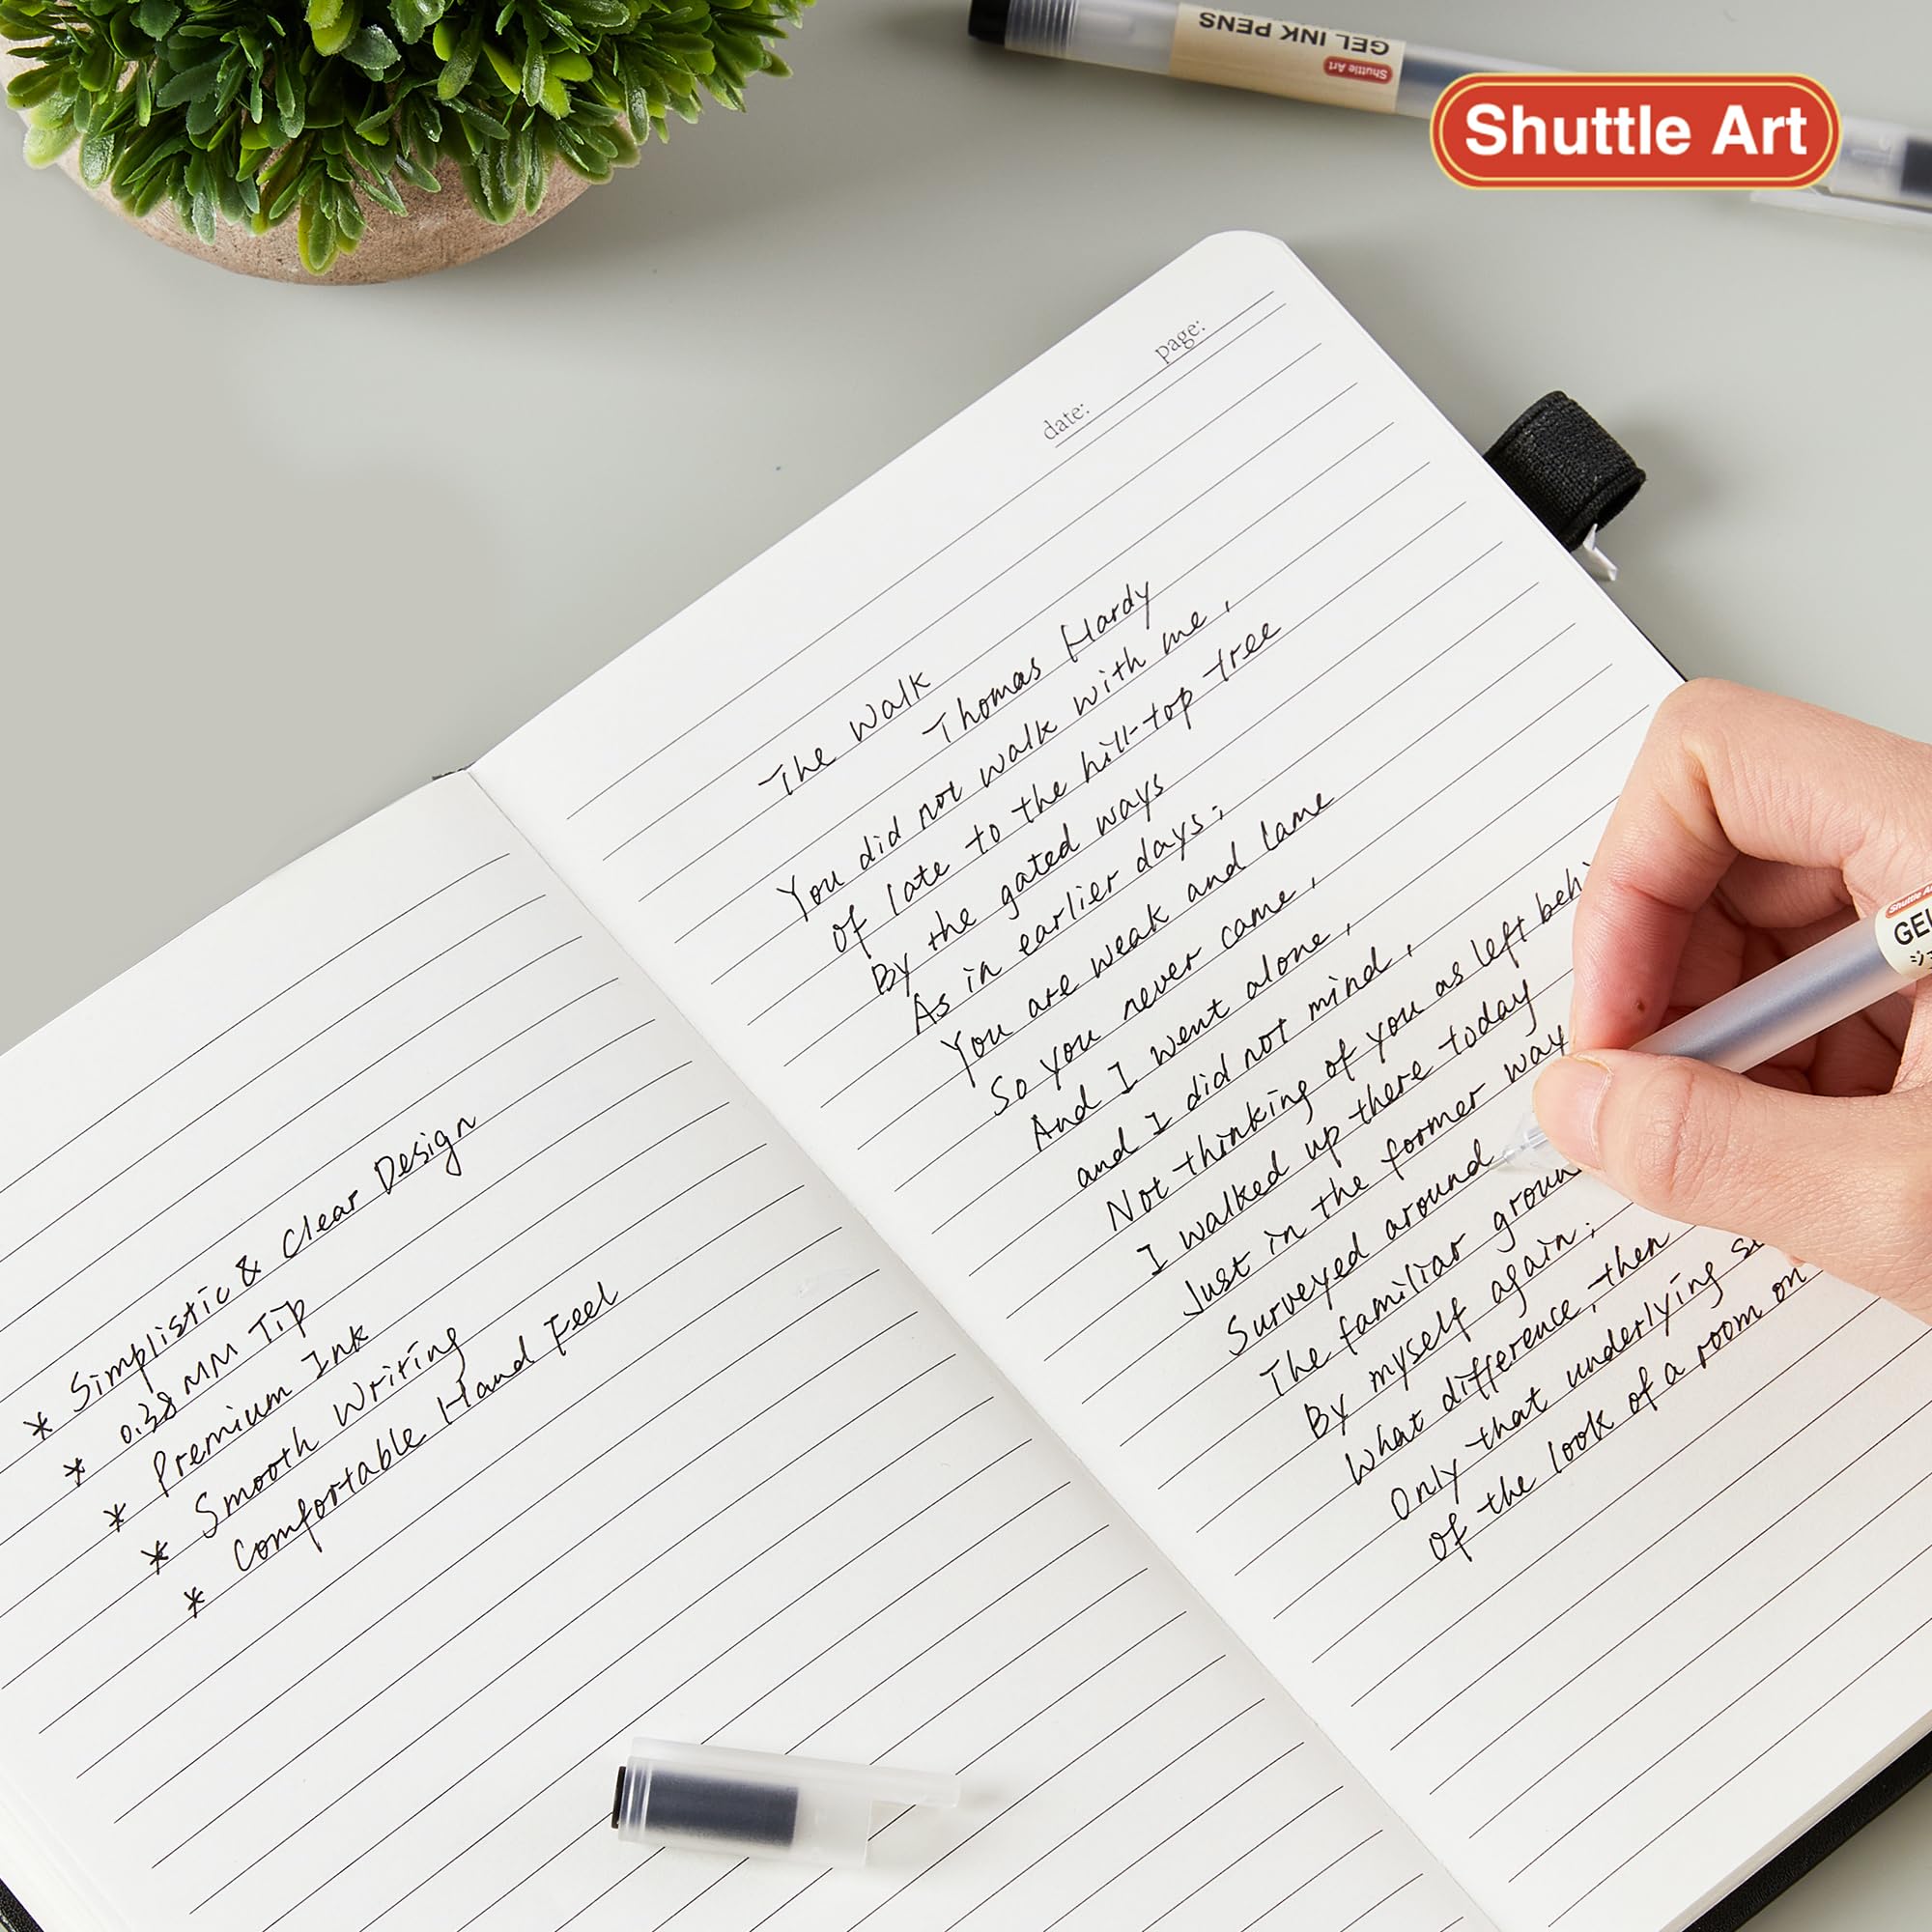 GEL INK PENS
Shuttle Art
Shuttle Art
page:
date:
The Walk
Thomas Hardy
You did not walk with me,
of late to the hill-top tree
By the gated ways
As in earlier days;
You are weak and lame
So you never came,
And I went alone,
and I did not mind,
Not thinking of you as left behi
I walked up there today
Just in the former way
Surveyed around
The familiar groun
By myself again;
What difference, then
Only that underlying se
of the look of a room on
* Simplistic & Clear Design
* 0.38 MM Tip
* Premium Ink
* Smooth Writing
* Comfortable Hand Feel
Shuttle A
GEL